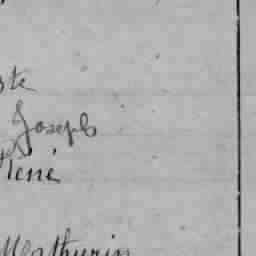 ste
Joseph
René
Mathurin